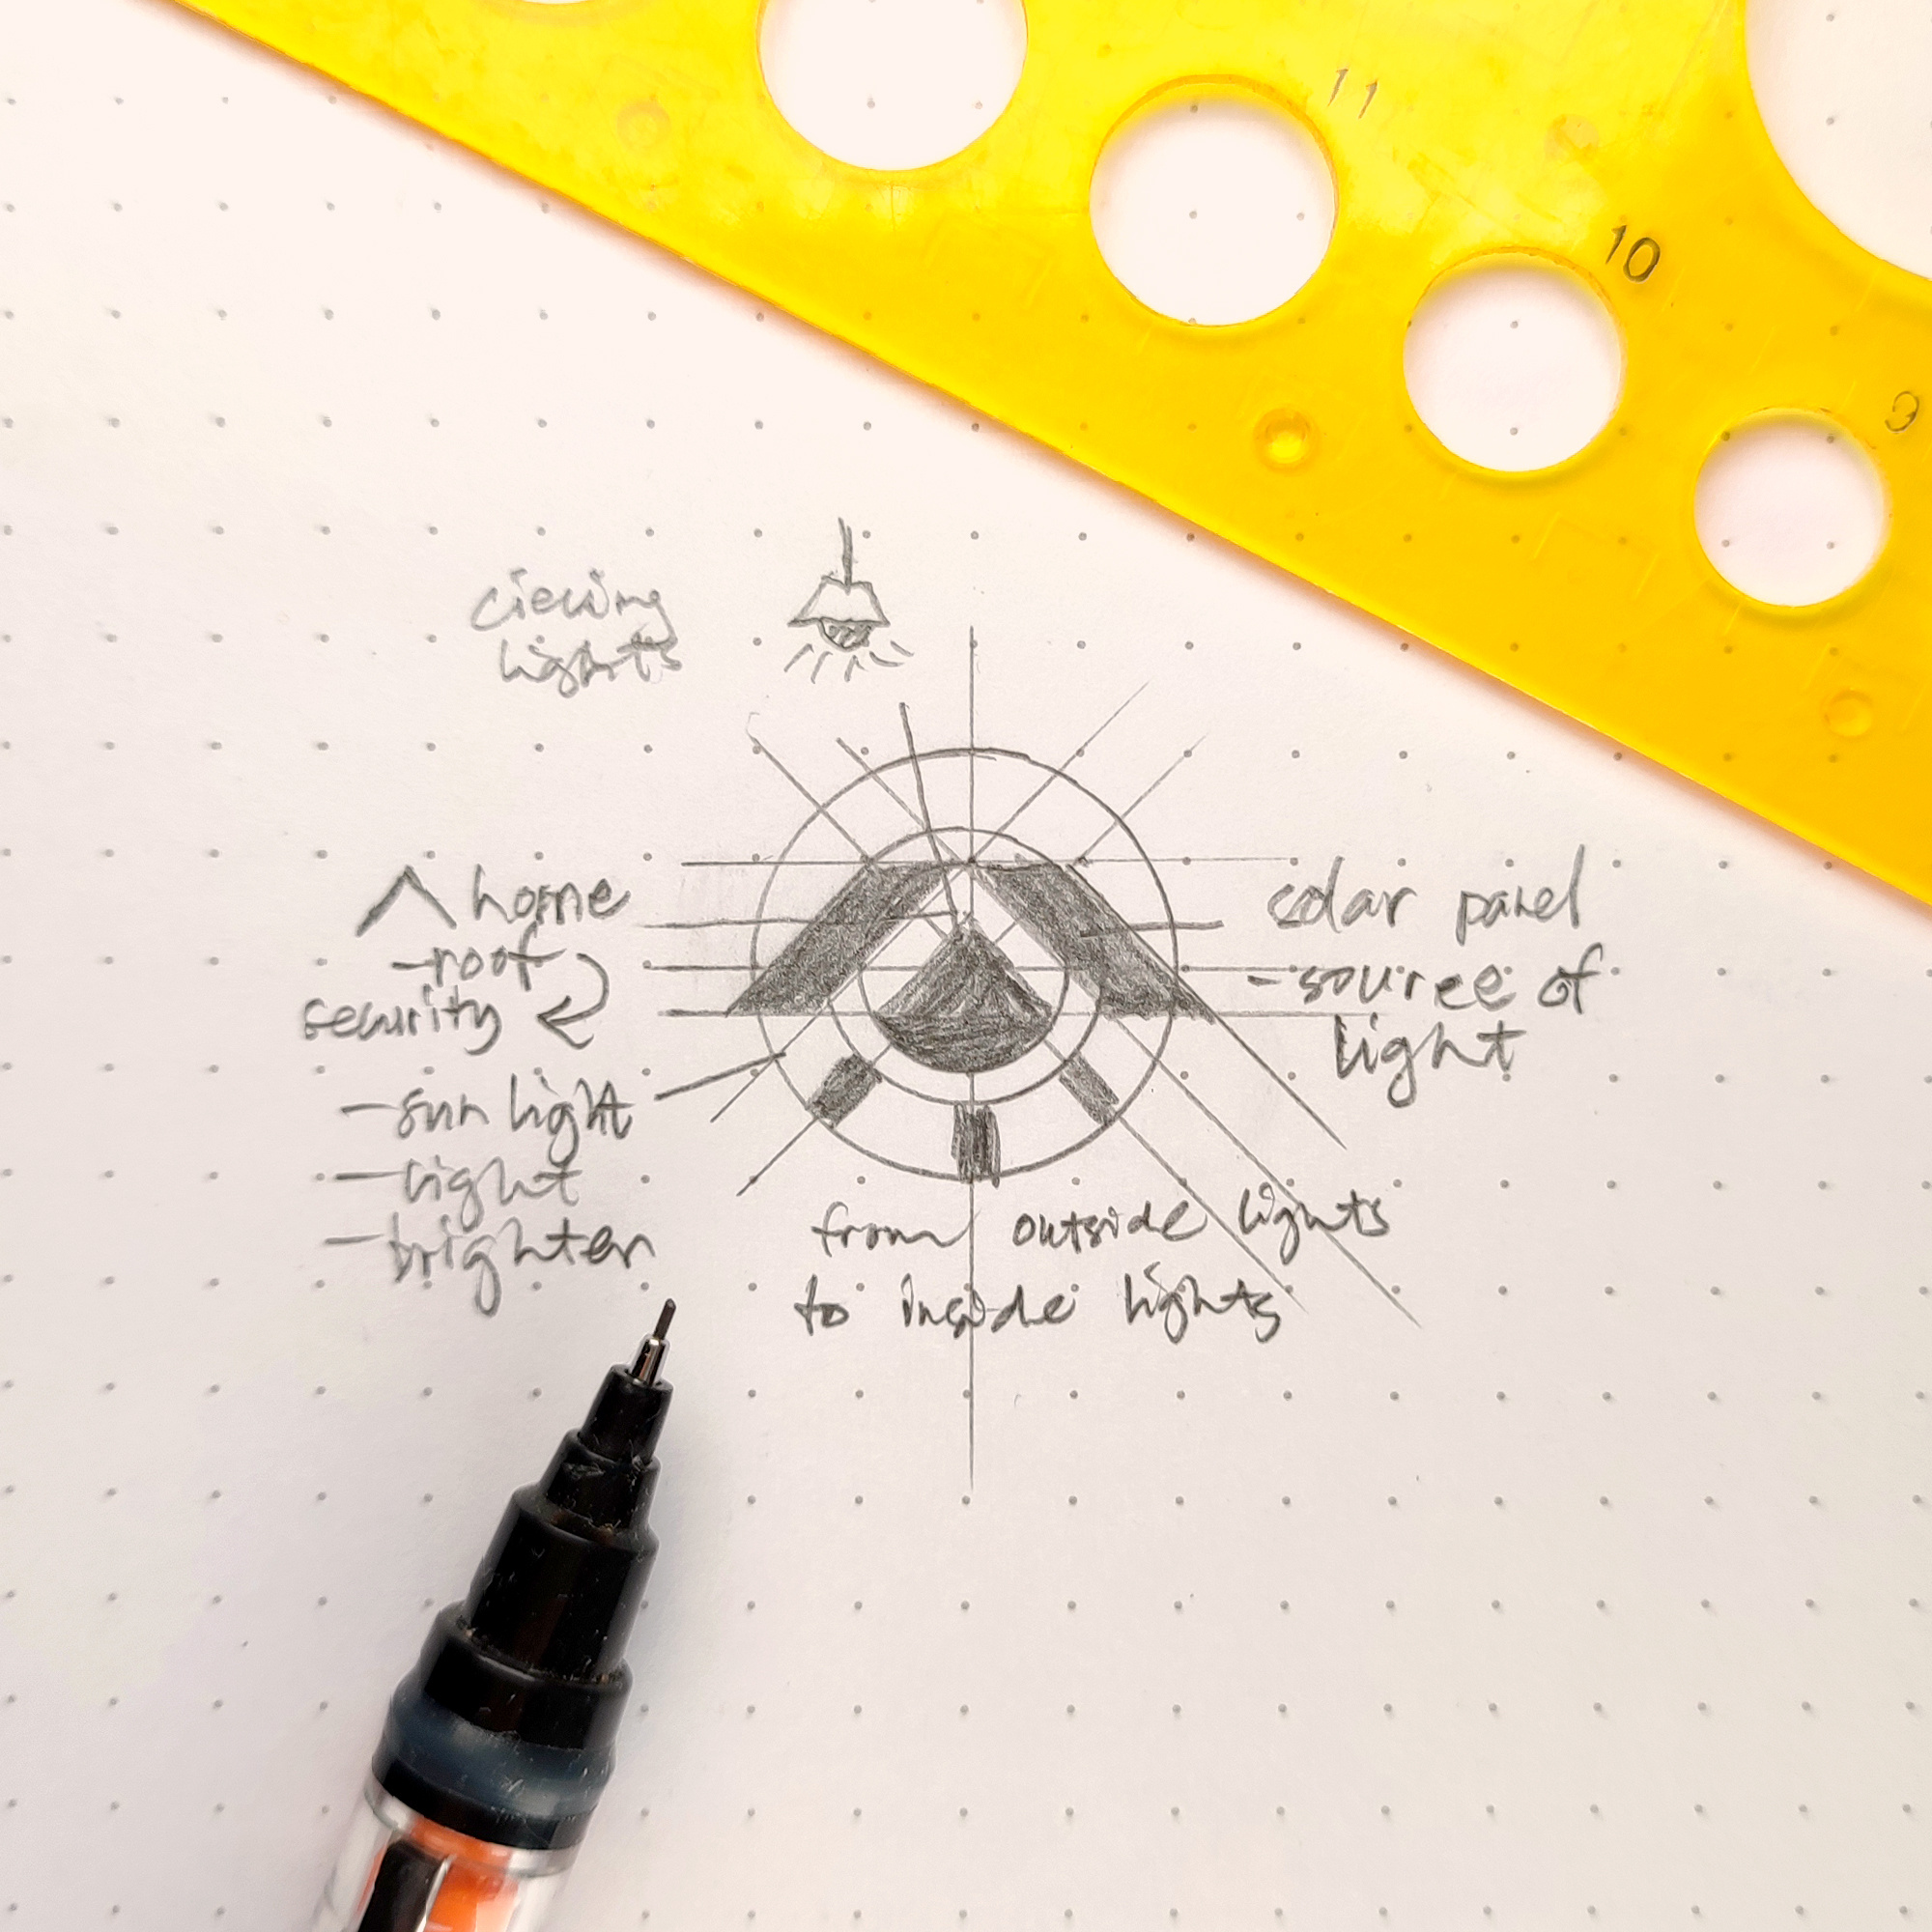 11
10
9
cieling
lights
home
-roof
security
-sun light
-light
-brighten
solar panel
-source of
light
from outside lights
to inside lights